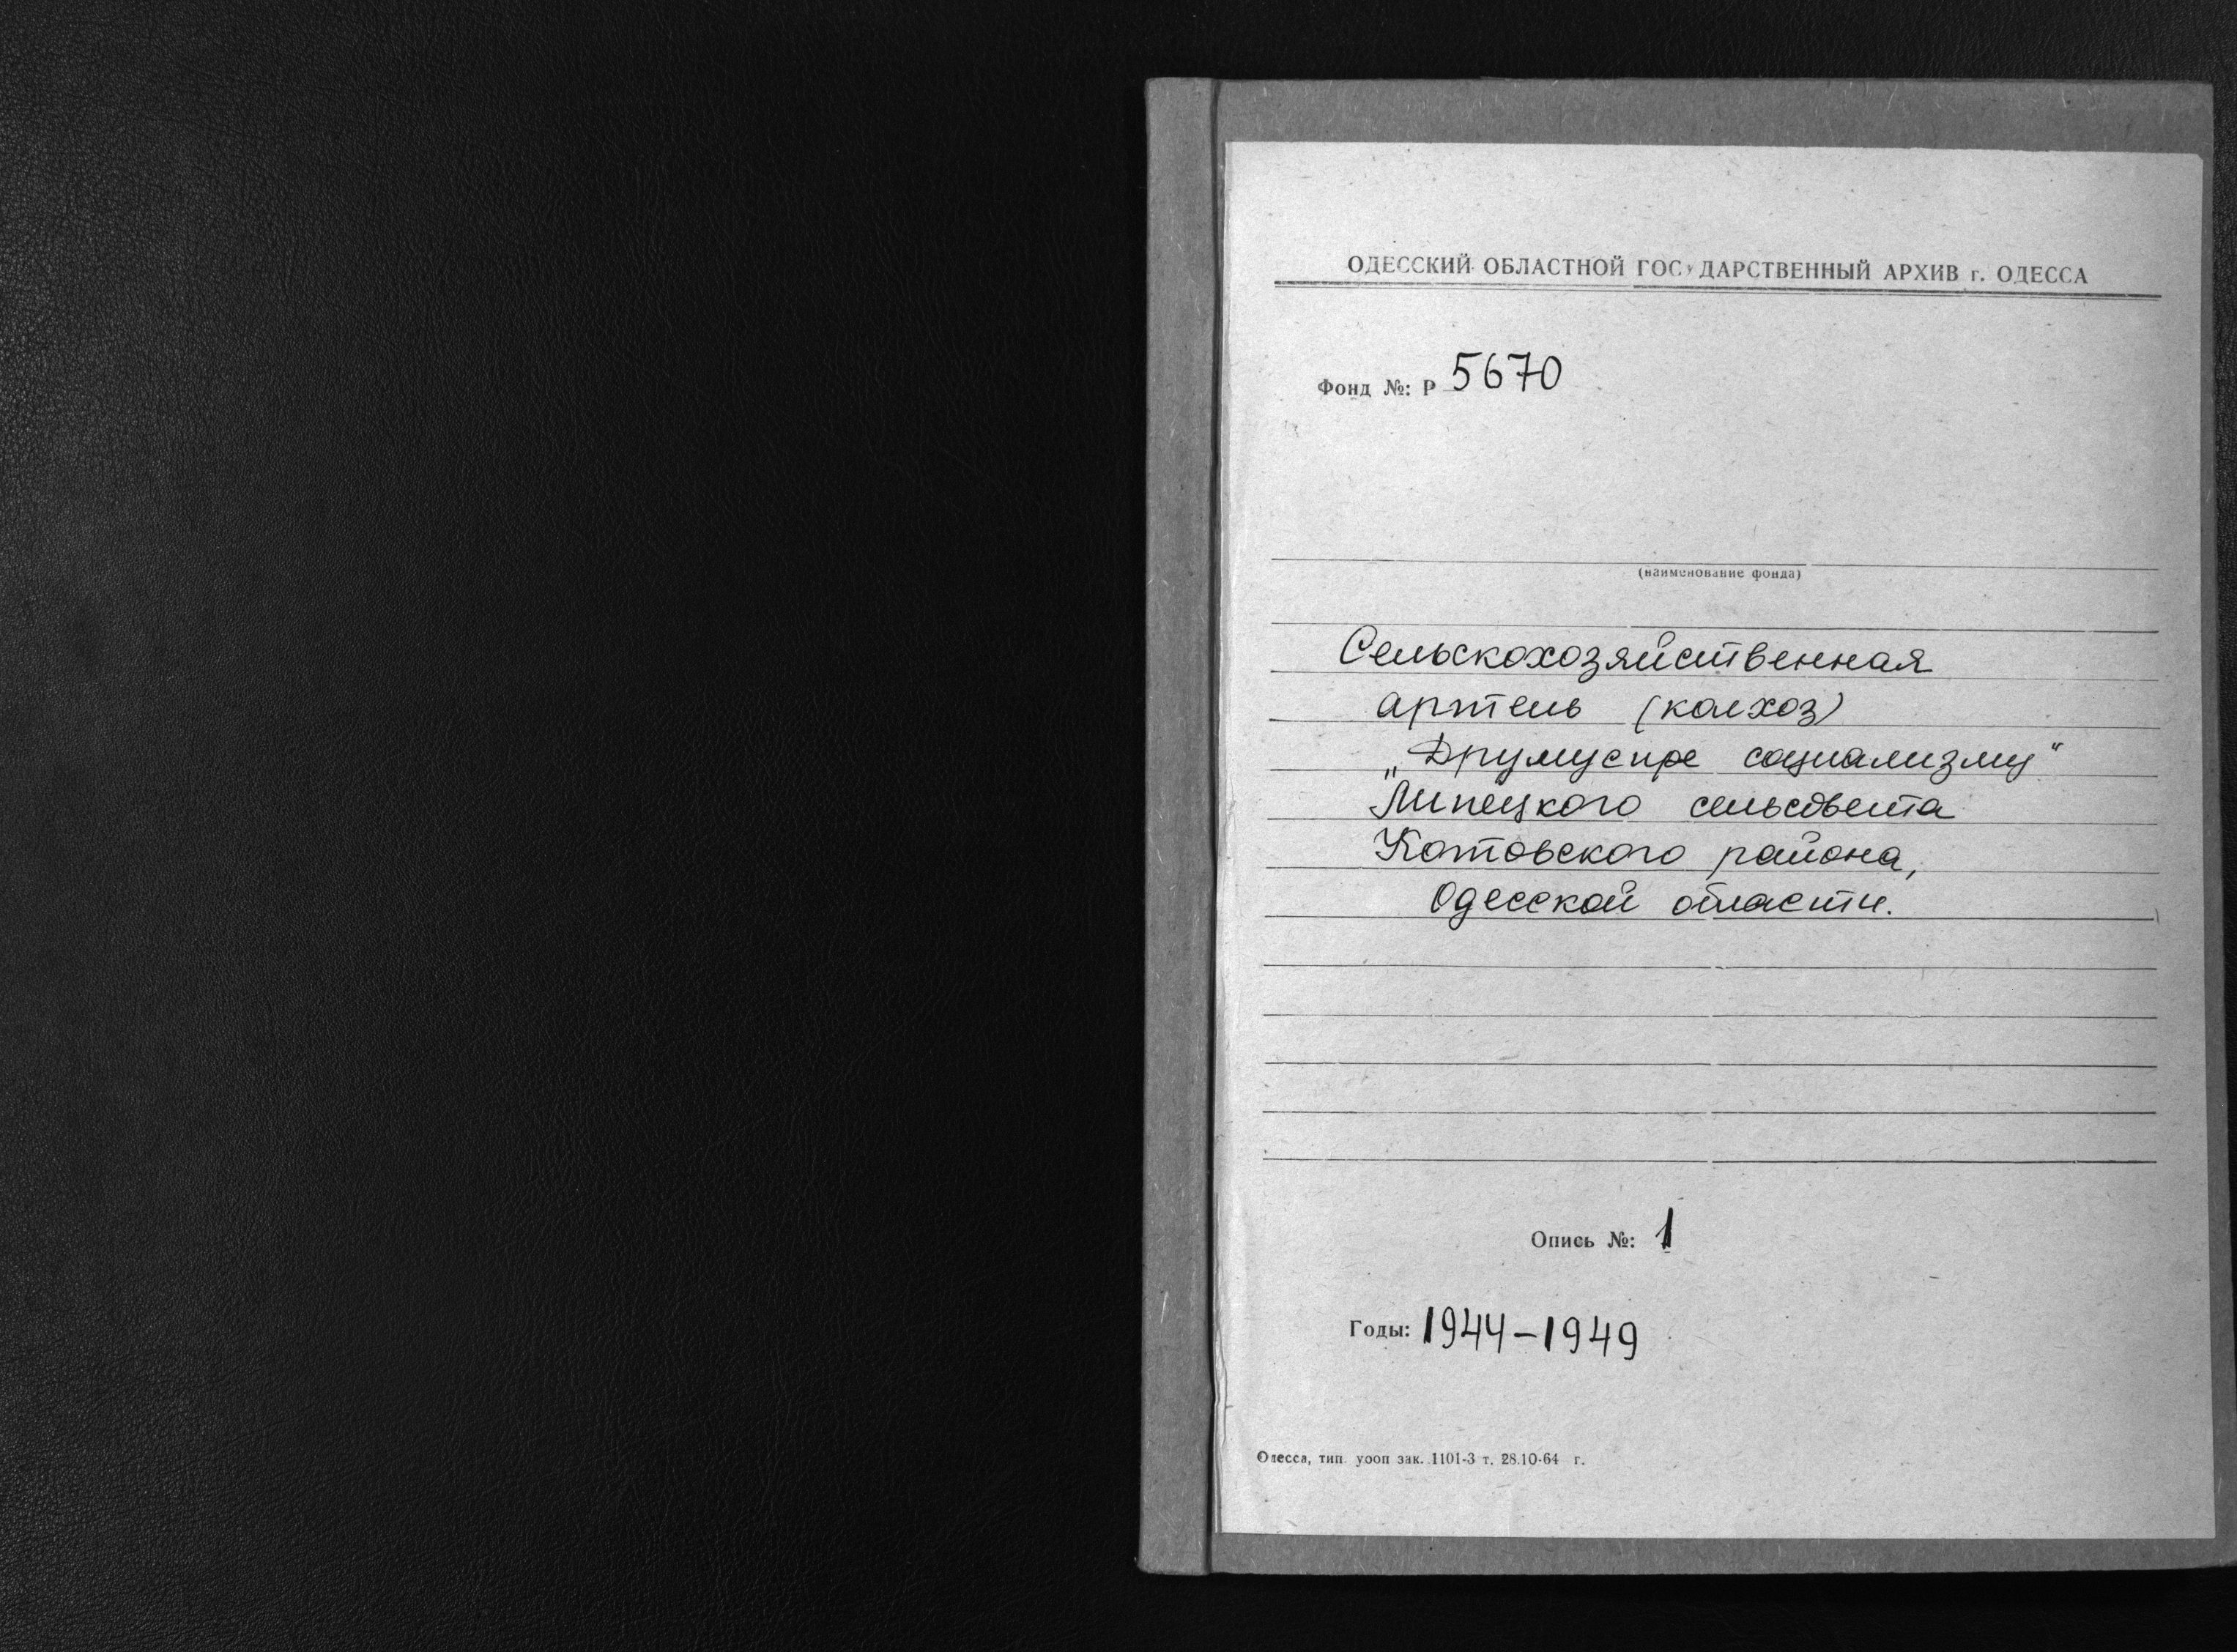 ОДЕССКИЙ ОБЛАСТНОЙ ГОСУДАРСТВЕННЫЙ АРХИВ г. ОДЕССА
Фонд №: Р 5670
(наименование фонда)
Сельскохозяйственная
артель (колхоз)
„Друмуспре социализму“
Липецкого сельсовета
Котовского района,
Одесской области.
Опись №: 1
Годы: 1944-1949
Одесса, тип. уооп зак. 1101-3 т. 28.10-64 г.